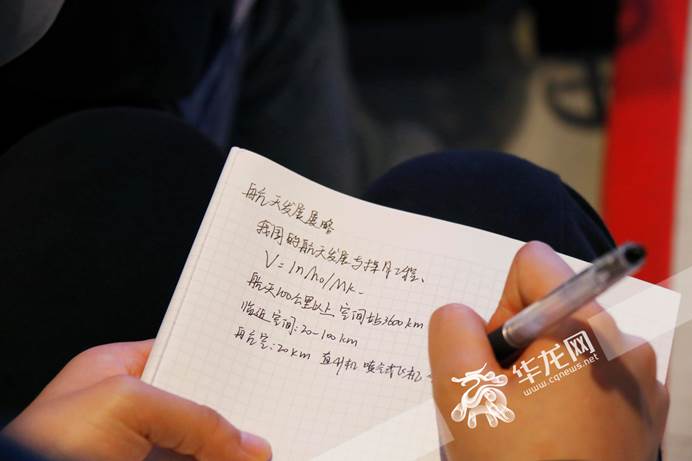 航天发展展略
我国的航天发展与探月工程、
V=lnMo/Mk.
航天100公里以上 空间站3600km
临近空间:20-100km
航空:20km 直升机 喷气式飞机
华龙网
www.cqnews.net